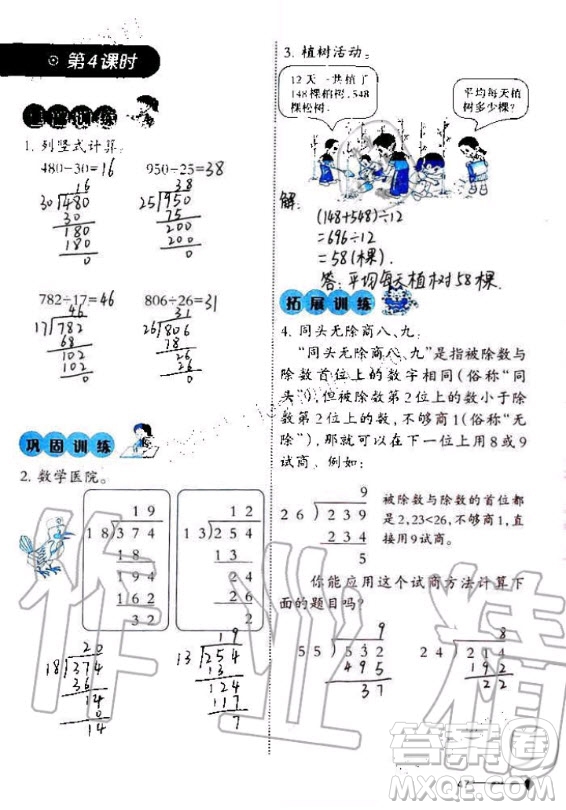 第4课时
基础训练
1. 列竖式计算。
480÷30=16 950÷25=38
16
30)480
30
180
180
0
38
25)950
75
200
200
0
782÷17=46 806÷26=31
46
17)782
68
102
102
0
31
26)806
78
26
26
0
巩固训练
2. 数学医院。
19
18)374
18
194
162
32
12
13)254
13
24
26
2
20
18)374
36
14
0
14
19
13)254
13
124
117
7
3. 植树活动。
12天一共植了
148棵柏树,548
棵松树。
平均每天植
树多少棵?
解:
(148+548)÷12
=696÷12
=58(棵)
答:平均每天植树58棵.
拓展训练
4. 同头无除商八、九。
“同头无除商八、九”是指被除数与
除数首位上的数字相同(俗称“同
头”),但被除数第2位上的数小于除
数第2位上的数,不够商1(俗称“无
除”),那就可以在十位上用8或9
试商。例如:
9
26)239
234
5
被除数与除数的首位都
是2,23<26,不够商1,直
接用9试商。
你能应用这个试商方法计算下
面的题目吗?
9
55)532
495
37
8
24)214
192
22
作业精
答案圈
MXQE.COM